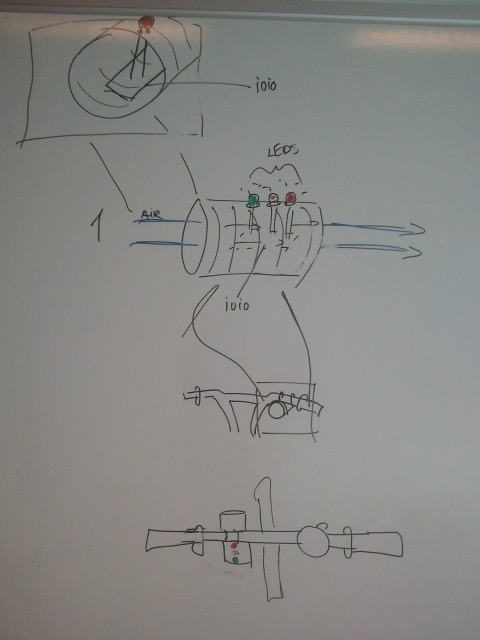 ioio
LEDS
1
AIR
ioio